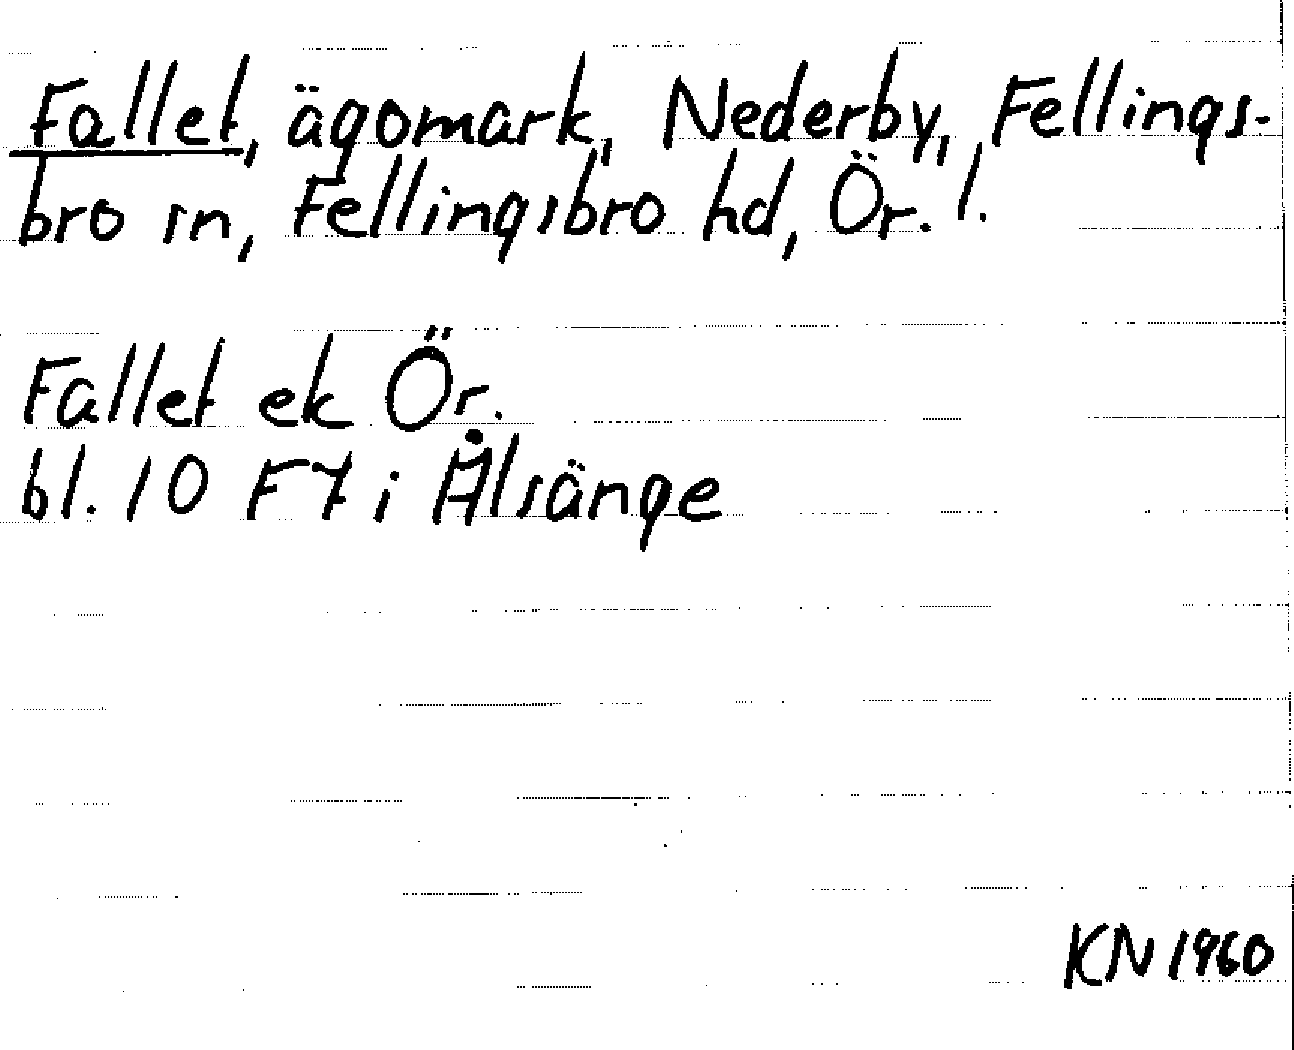 Fallet, ägomark, Nederby, Fellings-
bro sn, Fellingsbro hd, Ör. l.
Fallet ek Ör.
bl. 10 F7 i Ålsänge
KN 1960